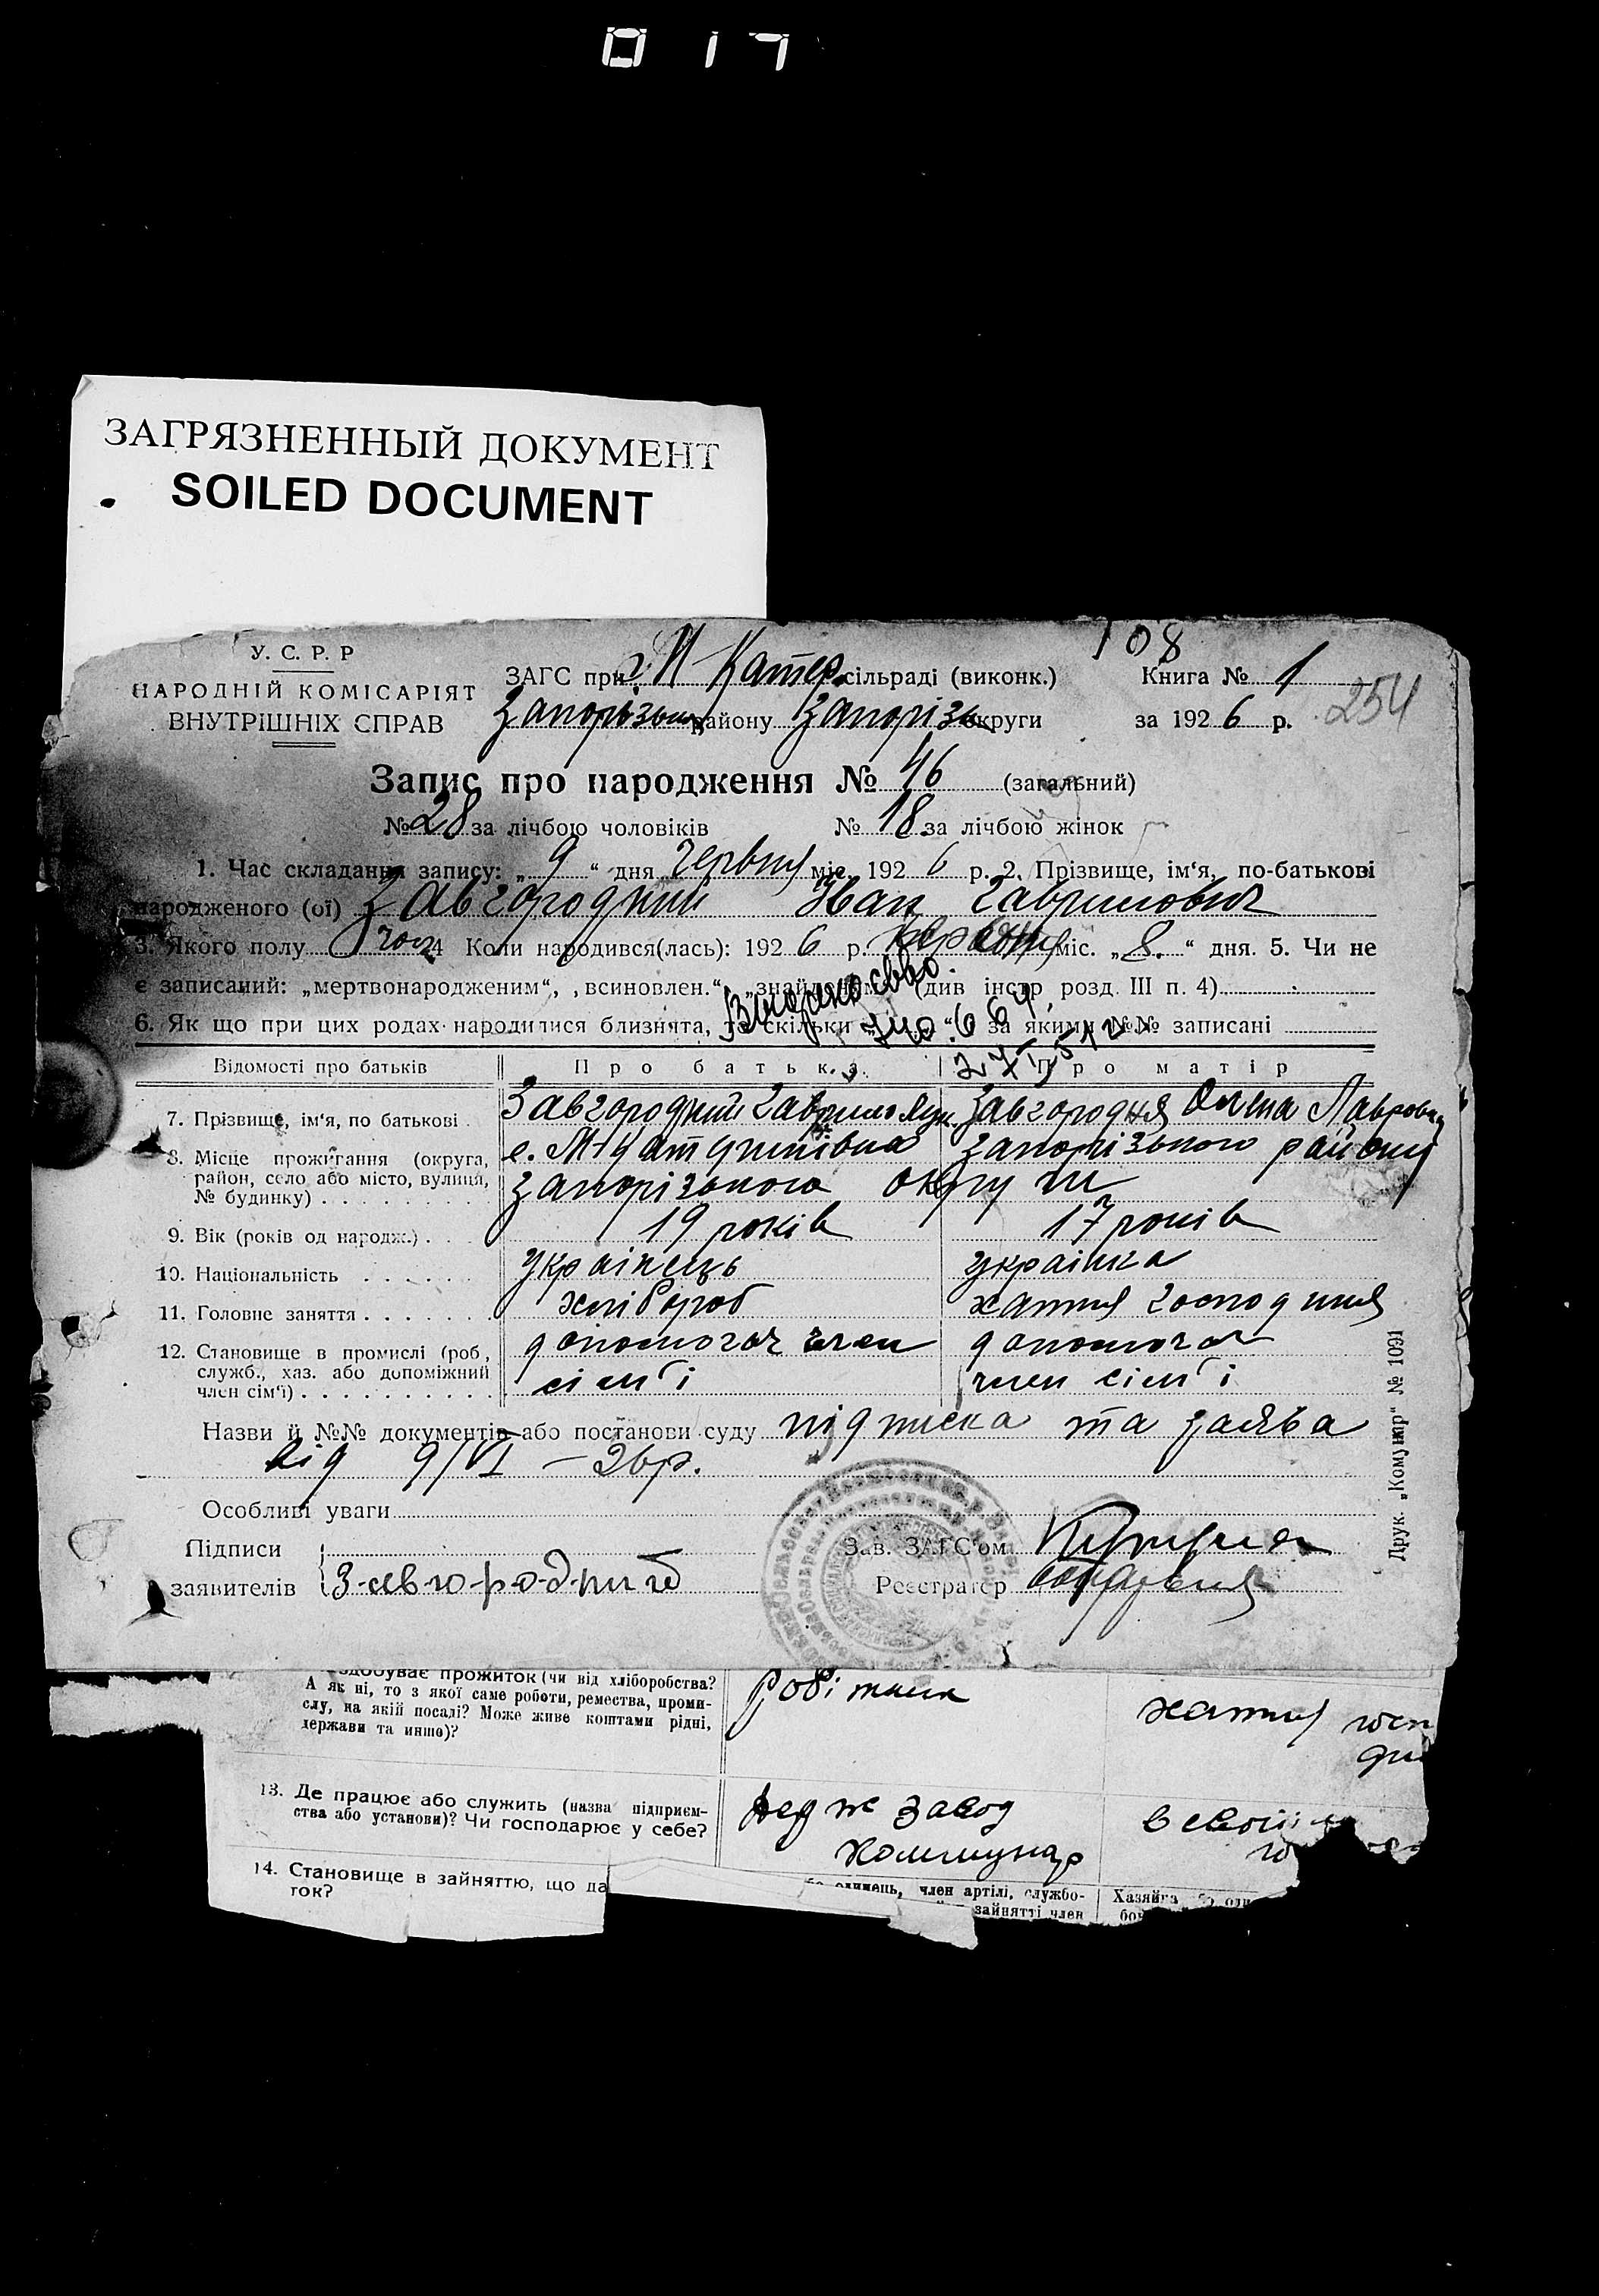 017
ЗАГРЯЗНЕННЫЙ ДОКУМЕНТ
SOILED DOCUMENT
108
У. С. Р. Р
НАРОДНІЙ КОМІСАРІЯТ
ВНУТРІШНІХ СПРАВ
ЗАГС при Катер. сільраді (виконк.) Книга № 1
району Запорізь округи за 1926 р. 254
Запис про народження № 46 (загальний)
№ 28 за лічбою чоловіків № 18 за лічбою жінок
1. Час складання запису: „ 9 “ дня червня міс. 1926 р. 2. Прізвище, ім‘я, по-батькові
народженого (ої) Завгородний Иван Гаврилович
3. Якого полу чол 4 Коли народився(лась): 1926 р. міс. „ 8. “ дня. 5. Чи не
є записаний: „мертвонародженим“, „всиновлен.“, (див інстр розд. III п. 4)
6. Як що при цих родах народилися близнята, то скільки за якими №№ записані
664
Відомості про батьків Про батька Про матір
7. Прізвище, ім‘я, по батькові Завгородний Завгородня Олена Лавровна
8. Місце прожигання (округа, район, село або місто, вулиця, № будинку) Запорізького району
Запорізького округи
9. Вік (років од народж.) 19 років 17 років
10. Національність українець українка
11. Головне заняття хлібороб хатня господиня
12. Становище в промислі (роб, служб., хаз. або допоміжний член сім‘ї) допомогач член сім'ї допомогач член сім'ї
Назви й №№ документів або постанови суду підписка та заява
від 9/VI – 26р.
Особливі уваги
Підписи
заявителів Завгородний
Зав. ЗАГС‘ом
Реєстратор
Друк. „Комунар“ № 1091
здобуває прожиток (чи від хліборобства?
А як ні, то з якої саме роботи, ремества, проми-
слу, на якій посаді? Може живе коштами рідні,
держави та инше)? робітник хатня госп
13. Де працює або служить (назва підприєм-
ства або установи)? Чи господарює у себе? завод
Коммунар
14. Становище в зайняттю, що да
ток?
член артілі, службо-
зайнятті член
Хазяйка